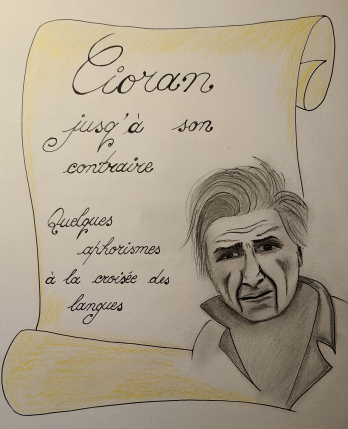 Cioran
jusq'à son
contraire
Quelques
aphorismes
à la croisée des
langues